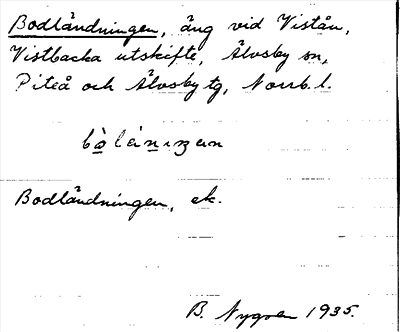 Bodländningen, äng vid Vistån,
Vistbacka utskifte, Älvsby sn,
Piteå och Älvsby tg, Norrb. l.
Bodländningen, ek.
B. Nygren 1935.